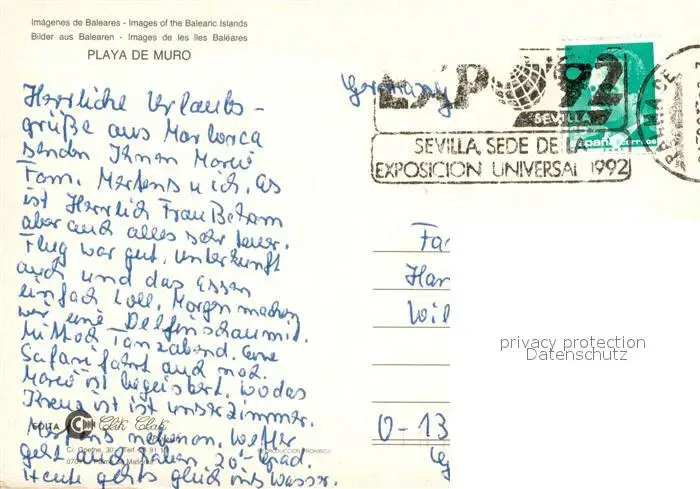 Imágenes de Baleares - Images of the Balearic Islands
Bilder aus Balearen - Images de les Iles Baléares
PLAYA DE MURO
Herrliche Urlaubs-
grüße aus Mallorca
senden Ihnen Mario
Fam. Mertens u ich. Es
ist Herrlich Frau Beham
aber auch alles sehr teuer.
Flug war gut, Unterkunft
auch und das Essen
einfach toll. Morgen machen
wir eine Delfinschau mit.
Mittwoch Tanzabend. Eine
Safari fahrt auch noch.
Mario ist begeistert. wo das
Kreuz ist ist unser Zimmer.
Mertens nebenan. Wetter
geht auch haben 20° Grad.
Heute gehts gleich ins Wasser.
EDITA
Clik Clak
C/. Goethe, 30 - Tel.
REPRODUCCION PROHIBIDA
Germany
EXPO'92
SEVILLA
SEVILLA, SEDE DE LA
EXPOSICION UNIVERSAL 1992
España correos
PALMA DE
Fa
Har
Wil
O-13
privacy protection
Datenschutz